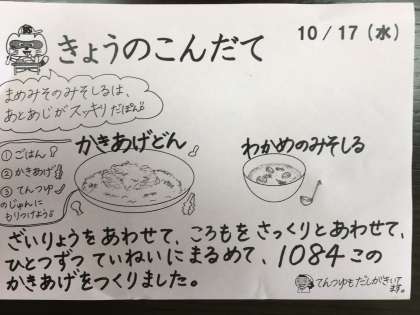 きょうのこんだて
10/17(水)
まめみそのみそしるは、
あとあじがスッキリだぽん♪
かきあげどん
わかめのみそしる
①ごはん
②かきあげ
③てんつゆ
のじゅんに
もりつけよう♪
ざいりょうをあわせて、ころもをさっくりとあわせて、
ひとつずつていねいにまるめて、1084この
かきあげをつくりました。
てんつゆもだしがきいて
ます。